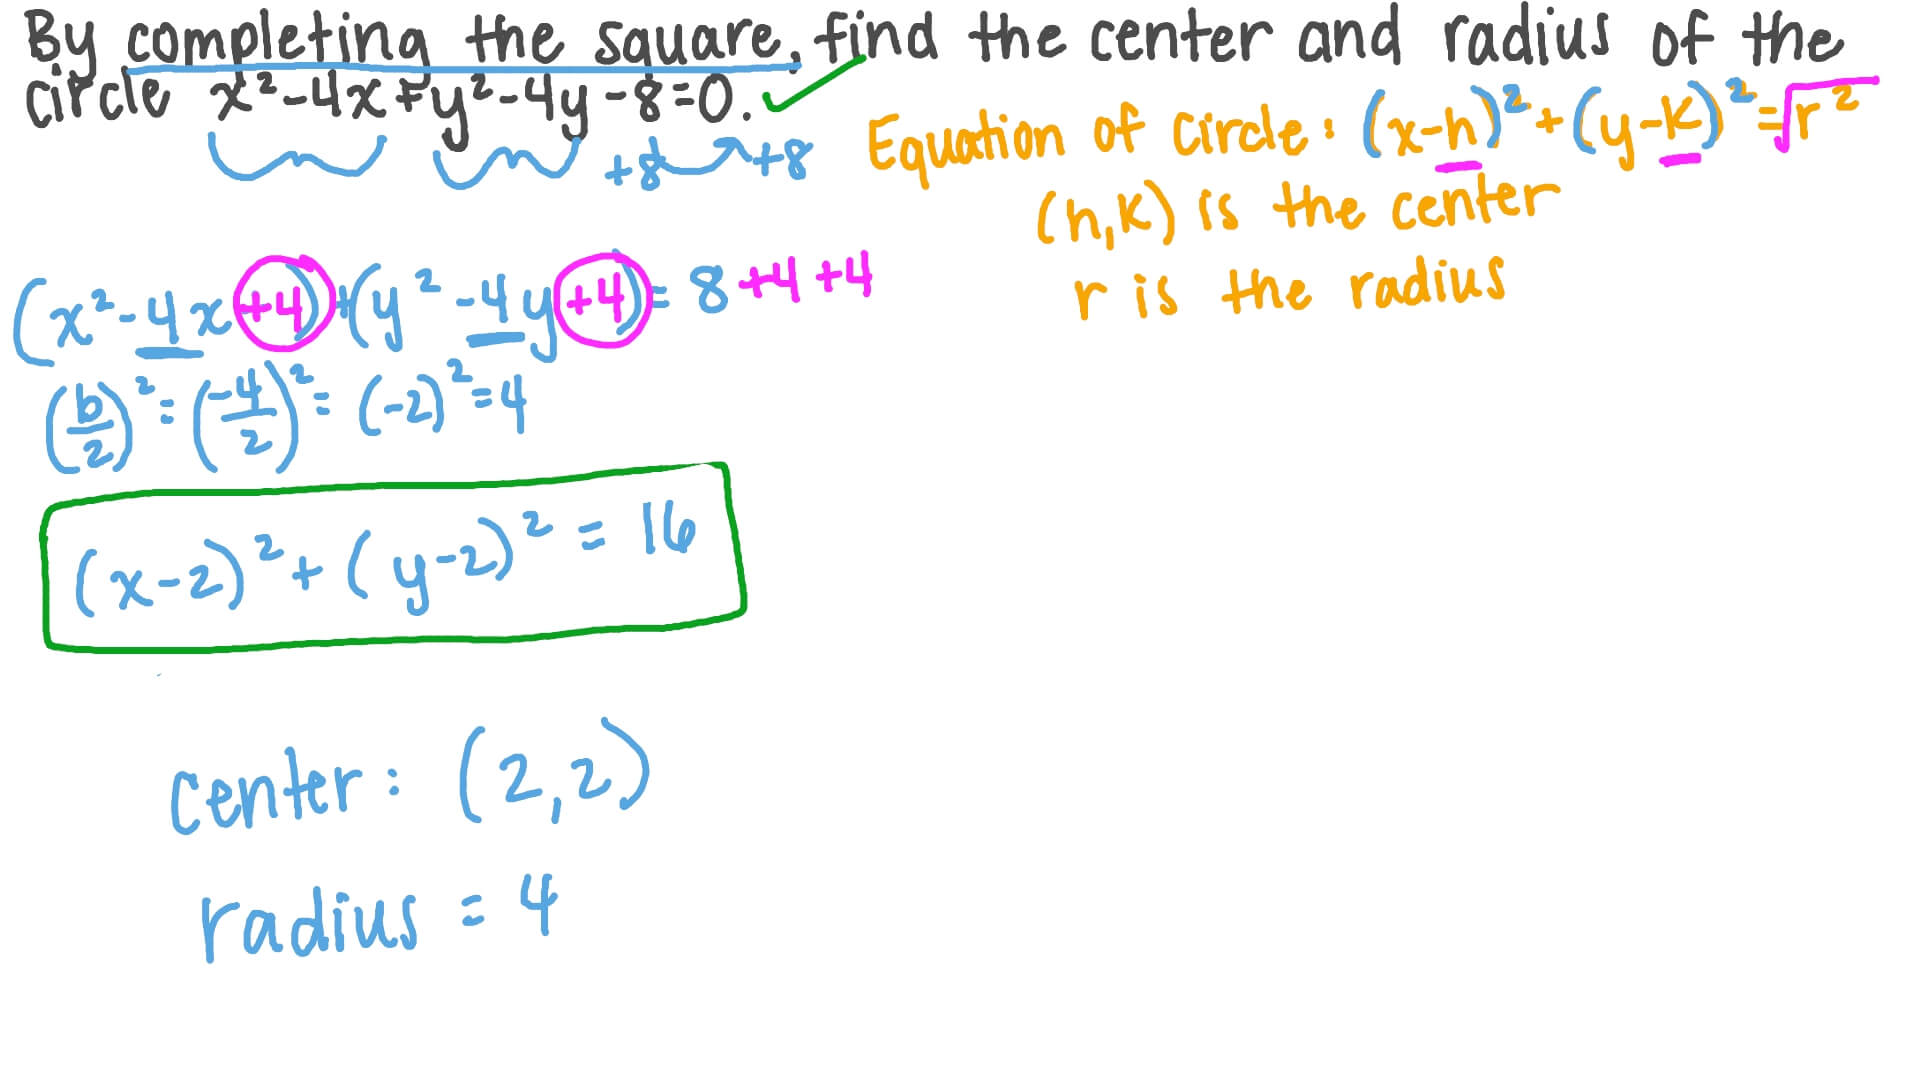 By completing the square, find the center and radius of the
circle x²-4x+y²-4y-8=0.
+8 +8
Equation of circle: (x-h)²+(y-k)²=√r²
(h,k) is the center
r is the radius
(x²-4x+4)+(y²-4y+4)=8+4+4
(b/2)²=(-4/2)²=(-2)²=4
(x-2)²+(y-2)²=16
center: (2,2)
radius = 4